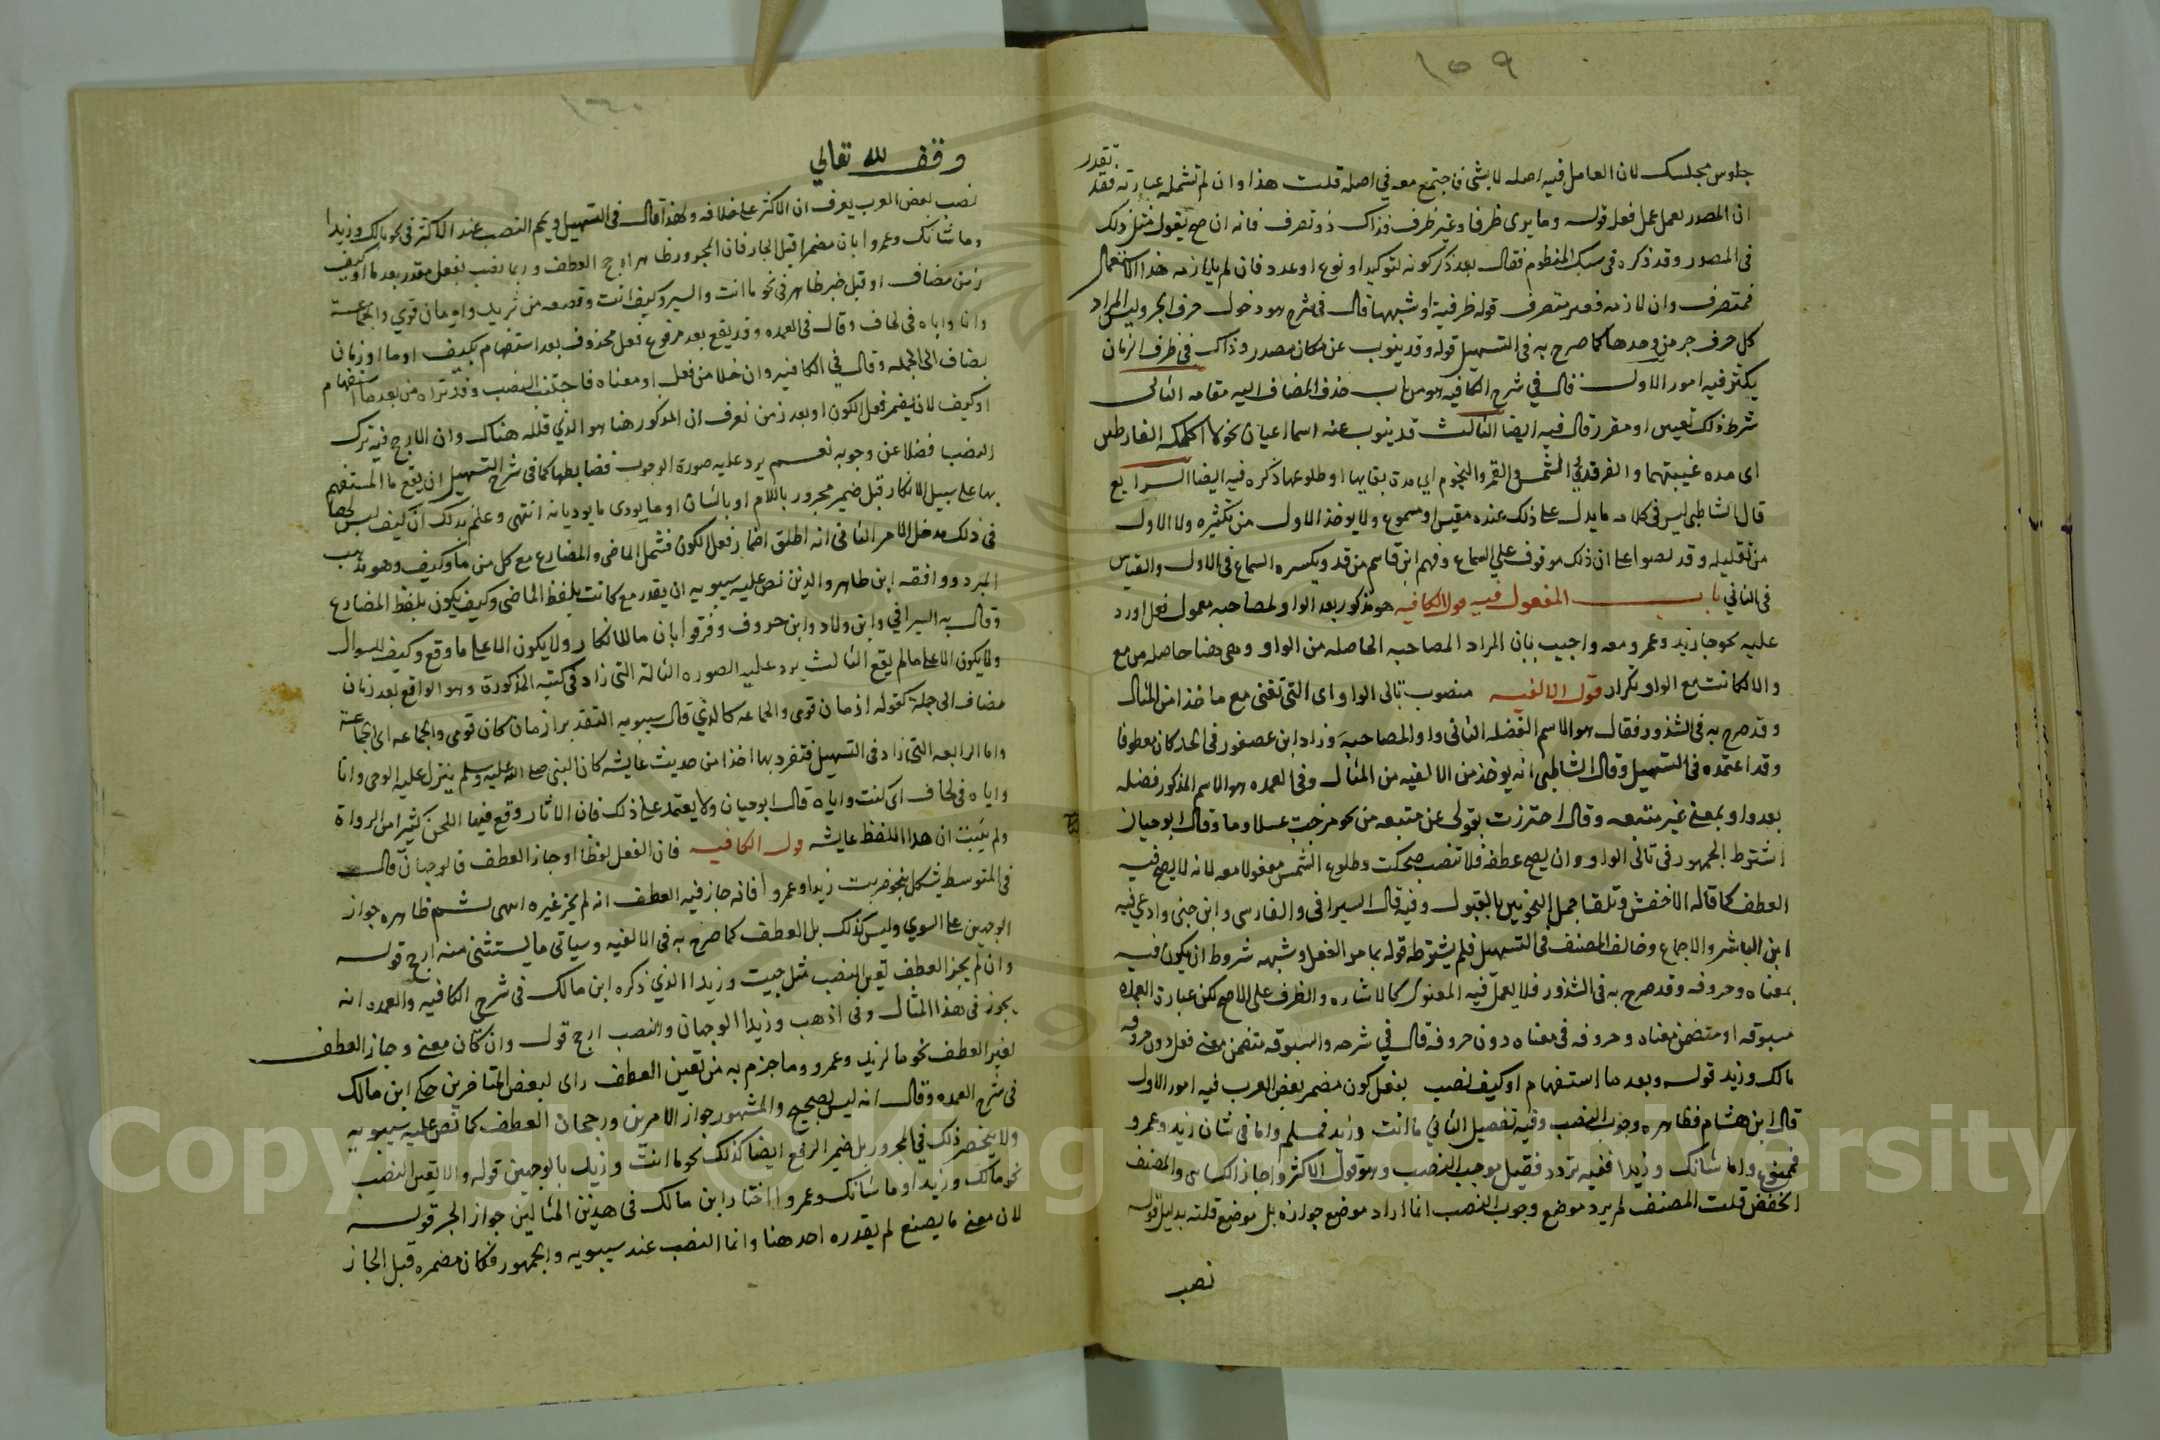 ١٥٩
جلوس مجلسك لان العامل فيه اصله لا يشى فاجتمع معه في اصله قلت هذا وان لم تشمله عبارته فقد تقدر
ان المصدر يعمل عمل فعل قوله وما يرى ظرفا وغير ظرف فذاك ذو تصرف فانه ان صح يقول فمثل ذلك
في المصدر وقد ذكره في سبك المنظوم فقال بعد ذكر كونه لتوكيد او نوع او عدد فان لم يلازمه هذا الاستعمال
فمتصرف وان لازمه فغير متصرف قوله ظرفية او شبهها قال في شرحه هو دخول حرف الجر وليس المراد
كل حرف جر من وحدها كما صرح به في التسهيل قوله وقد ينوب عن مكان مصدر وذاك في ظرف الزمان
يكثر فيه امور الاول قال في شرح الكافيه هو من باب حذف المضاف اليه مقامه الثاني
شرط ذلك تعيين او مقدر قال فيه ايضا الثالث قد ينوب عنه اسما اعيان نحو لا اكلمك القارظين
اى مده غيبتهما والفرقدين الشمس والقمر والنجوم اي مدة بقايها او طلوعها ذكره فيه ايضا الرابع
قال الشاطبي ليس في كلامه ما يدل على ذلك عنده مقيس او مسموع ولا يوخذ الاول من تكثيره ولا الاول
من تقليله وقد نصوا على ان ذلك موقوف على السماع وفهم ابن قاسم من قد ويكسره السماع في الاول والقياس
في الثاني باب المفعول فيه قول الكافيه هو مذكور بعد الواو لمصاحبه معمول فعل اورد
عليه نحو جا زيد وعمرو معه واجيب بان المراد المصاحبه الحاصله من الواو وهى هنا حاصله من مع
والا لكانت مع الواو تكرار قول الالفيه منصوب تالى الواو اى التى تقنى مع ماخذا من المثال
وقد صرح به في الشذور فقال هو الاسم الفضله الثانى واو المصاحبة وزاد ابن عصفور في الحد كان معطوفا
وقد اعتمده في التسهيل وقال الشاطبى انه يوخذ من الالفيه من المثال وفى العمده هو الاسم المذكور فضله
بعد واو بمعنى غير متبعه وقال احترزت بقولى عن متبعه من نحو مزجت عسلا وما وقال ابو حيان
اشترط الجمهور في تالى الواو وان يصح عطفه فلا تنصب ضحكت وطلوع الشمس مفعولا معه لانه لا يصح فيه
العطف كما قاله الاخفش وتلقاه جمل النحويين بالقبول وفيه قال السيرافى والفارسى وابن جنى وادعي فيه
ابن الباشر والاجماع وخالف المصنف في التسهيل فلم يشترطه قوله بما من الفعل وشبهه شروط ان يكون فيه
بمعناه وحروفه وقد صرح به في الشذور فلا يعمل فيه المعنوى كالاشاره والظرف على الاصح لكن عبارة العمده
مسبوقه او متضمن معناه وحروفه في معناه دون حروفه قال في شرحه والمسبوقه متضمن معنى فعل دون حروفه
مالك وزيد قوله وبعد ما استفهام او كيف نصب بفعل كون مضمر بعض العرب فيه امور الاول
قال ابن هشام فظاهره وجوب النصب وفيه تفصيل الثاني ما انت وزيد فمسلم واما في شان زيد وعمرو
فممنوع واما شانك وزيدا ففيه تردد فقيل بوجوب النصب وهو قول الاكثر واجاز الكساى والمصنف
الخفض قلت المصنف لم يرد موضع وجوب النصب انما اراد موضع جوازه بل موضع قلته بدليل قوله
نصب
١٦٠
وقف لله تعالي
نصب بعض العرب يعرف ان الاكثر على خلافه ولهذا قال في التسهيل ويحم النصب عند الاكثر في نحو مالك وزيدا
وما شانك وعمروا بان مضمر قبل الجار فان المجرور ظاهرا رجح العطف وربما نصب بفعل مقدر بعد ما او كيف
زمن مضاف او قبل خبر ظاهر في نحو ما انت والسير وكيف انت وقصعه من ثريد وازمان قومي والجماعة
وانا واياه في لحاف وقال في العمده وقد يقع بعد مرفوع فعل محذوف بعد استفهام بكيف او ما او زمان
يضاف الى الجمله وقال في الكافيه وان خلا من فعل او معناه فاجتنب النصب وقد تراه من بعد ما استفهام
او كيف لان يضمر فعل الكون او بعد زمن نعرف ان المذكور هنا هو الذي قلله هناك وان الارجح فيه ترك
النصب فضلا عن وجوبه نعم يرد عليه صورة الوجوب فضابطها كما في شرح التسهيل ان يقع ما المستفهم
بها على سبيل الانكار قبل ضمير مجرور باللام او بالشان او ما يودى ما يوديانه انتهى وعلم بذلك ان كيف ليس لها
في ذلك مدخل الامر الثانى انه اطلق اضمار فعل الكون فشمل الماضى والمضارع مع كل من ما وكيف وهو مذهب
المبرد ووافقه ابن طاهر والذين نص عليه سيبويه ان يقدر مع كانت بلفظ الماضى وكيف يكون بلفظ المضارع
وقال به السيرافي وابن ولاد وابن خروف وفرقوا بان ما للانكار ولا يكون الا على ما وقع وكيف للسوال
ولا يكون الا على ما لم يقع الثالث يرد عليه الصوره الثالثة التى زاد في كتبه المذكورة وهو الواقع بعد زمان
مضاف الى جملة كقوله ازمان قومى والجماعه كالذي قال سيبويه التقدير ازمان كان قومى والجماعه اى الجماعة
واما الرابعه التى زاد في التسهيل فتفرد بها اخذا من حديث عايشه كان النبى صلى الله عليه وسلم ينزل عليه الوحى وانا
واياه في لحاف اى كنت واياه قال ابو حيان ولا يعتمد على ذلك فان الاثار وقع فيها اللحن كثيرا من الرواة
ولم يثبت ان هذا اللفظ عايشه قول الكافيه فان الفعل لفظا او جاز العطف فالوجهان قال
في المتوسط يشكل بنحو ضربت زيدا وعمروا فانه جاز فيه العطف انه لم يجز غيره انتهى ثم ظاهره جواز
الوجهين على السوي وليس كذلك بل العطف كما صرح به في الالفيه وسياتى ما يستثنى منه ارجح قوله
وان لم يجز العطف تعين النصب مثل جيت وزيدا الذي ذكره ابن مالك في شرح الكافيه والعمده انه
يجوز في هذا المثال وفى اذهب وزيدا الوجهان والنصب ارجح قوله وان كان معنى وجاز العطف
لغير العطف نحو ما لزيد وعمرو وما جزم به من تعين العطف راى لبعض المتاخرين حكى ابن مالك
في شرح العمده وقال انه ليس بصحيح والمشهور جواز الامرين ورجحان العطف كما نص عليه سيبويه
ولا ينحصر ذلك في المجرور بل ضمير الرفع ايضا كذلك نحو ما انت وزيد بالوجهين قوله والا يتعين النصب
نحو مالك وزيدا وما شانك وعمروا اختار ابن مالك في هذين المثالين جواز الجر قوله
لان معنى ما يصنع لم يقدره احد هنا وانما النصب عند سيبويه والجمهور فكان مضمره قبل الجاز
Copyright © King Saud University